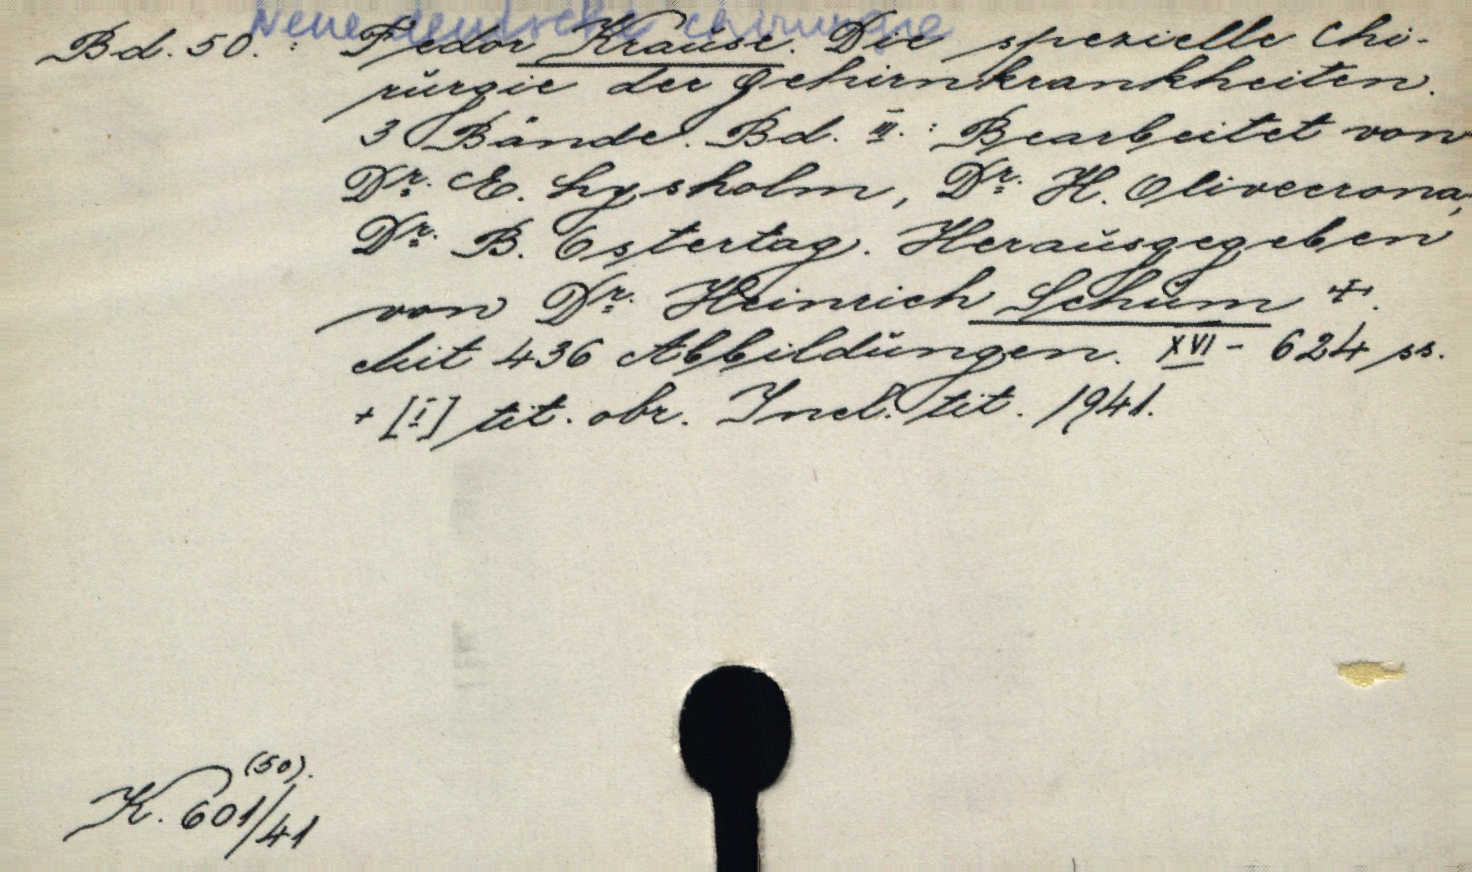 Neue deutsche Chirurgie
Bd. 50. : Fedor Krause. Die spezielle Chi-
rurgie der Gehirnkrankheiten.
3 Bände. Bd. III. : Bearbeitet von
Dr. E. Lysholm, Dr. H. Olivecrona,
Dr. B. Ostertag. Herausgegeben
von Dr. Heinrich Schum +.
Mit 436 Abbildungen. XVI - 624 ss.
+ [I] tit. obr. Incl. tit. 1941.
(50).
K. 601/41